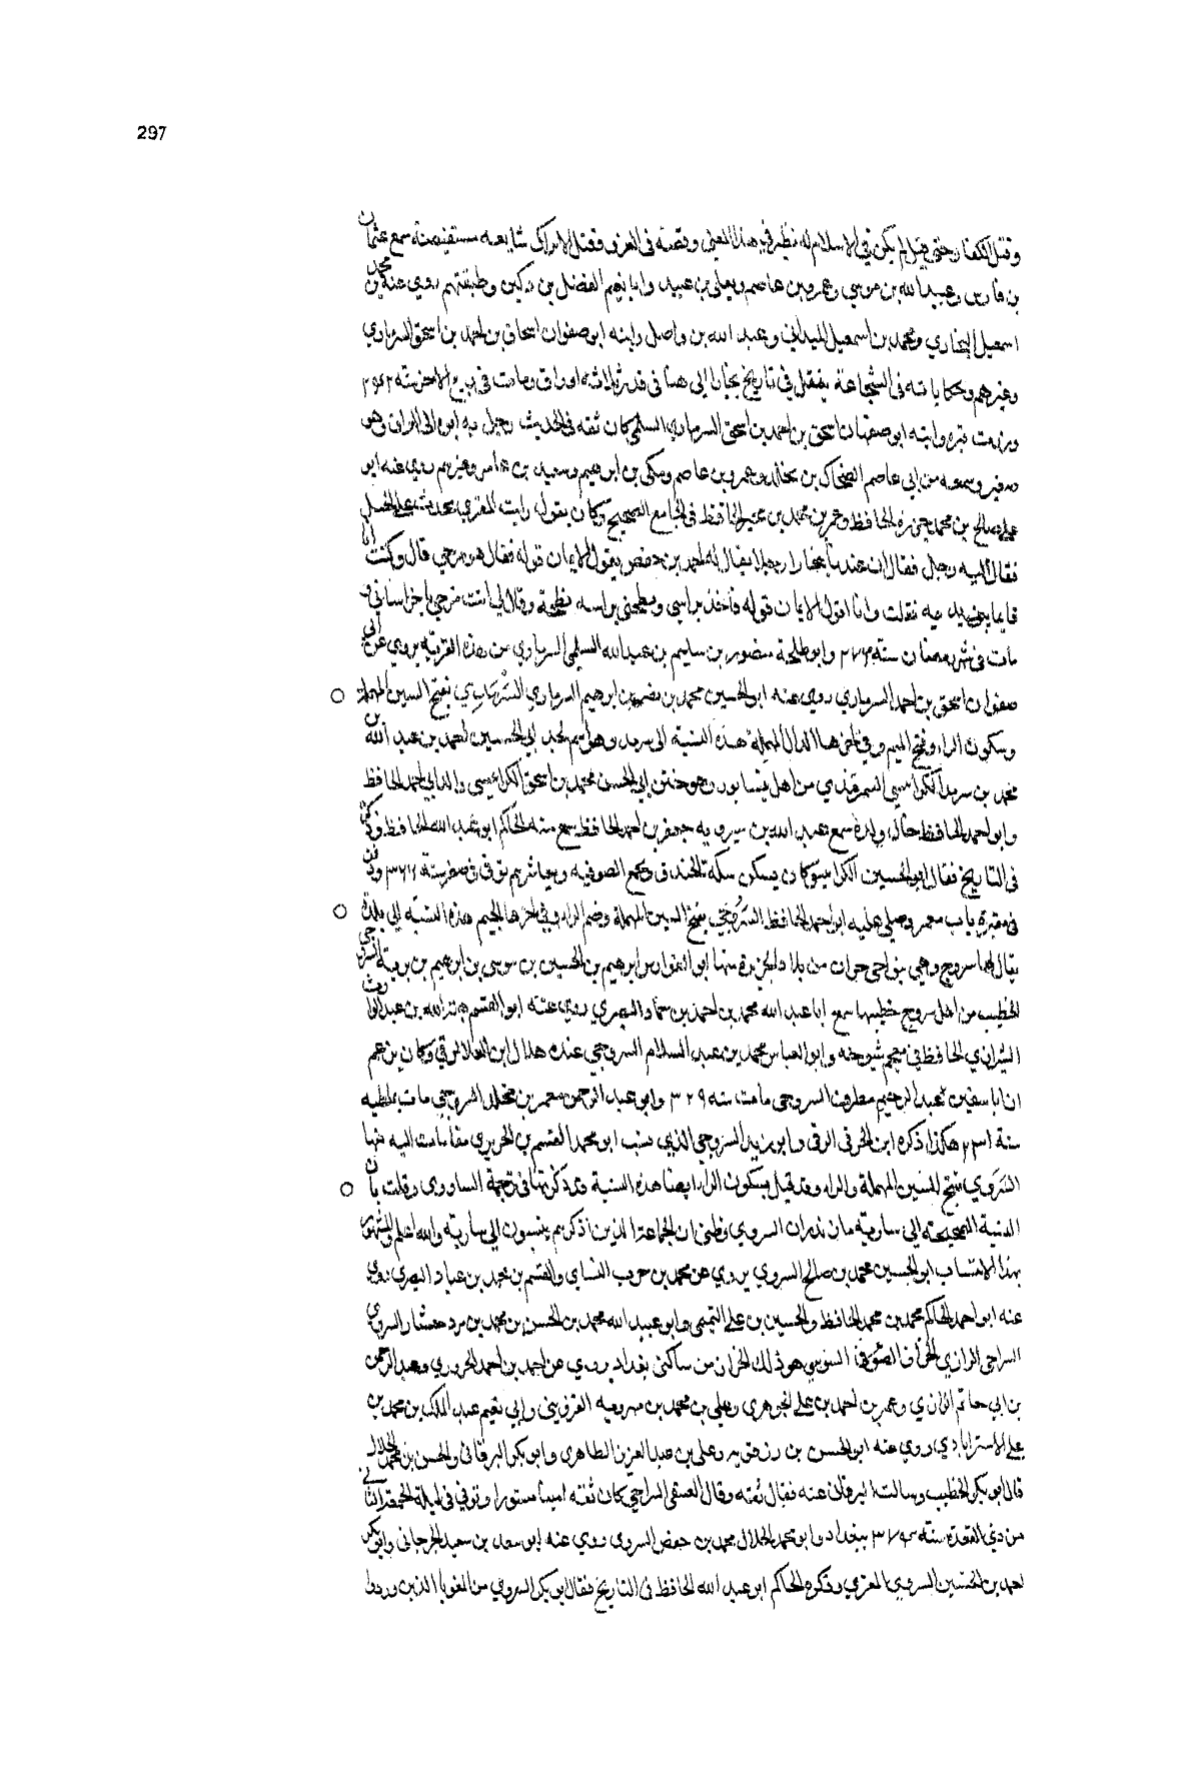 297
وقتل الكفار حتى قيل لم يكن في الاسلام له نظير في هذا المعنى وقصته في الغزو وقتل الاتراك شايعه مستفيضة سمع عثمان
بن فارس وعبيد الله بن موسى وعمرو بن عاصم ويعلى بن عبيد وابا نعيم الفضل بن دكين وطبقتهم روي عنه محمد بن
اسمعيل البخاري ومحمد بن اسمعيل الميداني وعبد الله بن واصل وابنه ابو صفوان اسحاق بن احمد بن اسحق السرماري
وغيرهم وحكاياته في الشجاعة في تاريخ بخارا الى هنا في قدر ثلاثه اوراق ومات في ربيع الاخر سنه ٢٤٢
وزرت قبره وابنه ابو صفوان اسحق بن احمد بن اسحق السرماري السلمي كان ثقه في الحديث رحل به ابوه الى العراق وهو
صغير وسمعه من ابي عاصم الضحاك بن مخلد وعمرو بن عاصم ومكي بن ابرهيم وسعيد بن عامر وغيرهم روي عنه ابو
علي صالح بن محمد جزره الحافظ وعمر بن محمد بن بجير الحافظ في الجامع الصحيح وكان يقول رايت المقري بحديث
فقال اليه رجل فقال ان عندنا ببخارا رجلا يقال له احمد بن حفص يقول الايمان قوله فقال هو مرجي قال وكنت انا
قايما بين يديه فقلت وانا اقول الايمان قوله فاخذ براسي ونطحني براسه نطحة وقال لي انت مرجي يا خراساني و
مات في شهر رمضان سنة ٢٧٦ وابو طلحة منصور بن سليم بن عبد الله السلمي السرماري من هذه القريه يروي عن ابي
صفوان اسحق بن احمد السرماري روي عنه ابو الحسين محمد بن نصر بن ابرهيم السرماري ○ السرمدي بفتح السين المهملة
وسكون الراء وفتح الميم وفي اخرها الدال المهملة هذه النسبة الى سرمد وهو اسم لجد ابي الحسين احمد بن عبد الله بن
محمد بن سرمد الكرابيسي السمرقندي من اهل نيسابور وهو ختن ابي الحسن محمد بن اسحق الكرابيسي والد ابي احمد الحافظ
وابو احمد الحافظ خال ولده سمع عبد الله بن سيرويه جعفر بن احمد الحافظ سمع منه الحاكم ابو عبد الله الحافظ وذكره
في التاريخ فقال ابو الحسين الكرابيسي كان يسكن سكة الخندق ويجمع الصوفيه ويعاشرهم توفي في صفر سنة ٣٦٦ ودفن
في مقبرة باب معمر وصلى عليه ابو احمد الحافظ ○ السروجي بفتح السين المهملة وضم الراء وفي اخرها الجيم هذه النسبه الى بلدة
يقال لها سروج وهي بنواحي حران من بلاد الجزيرة منها ابو الفوارس ابرهيم بن الحسين بن موسى بن ابرهيم بن برية السروجي
الخطيب من اهل سروج خطيبها سمع ابا عبد الله محمد بن احمد بن حماد البصري روي عنه ابو القسم هبة الله بن عبد الوارث
الشيرازي الحافظ في معجم شيوخه وابو العباس محمد بن عبد السلام السروجي عنده هلال ابن العلا الرقي وكان يزعم
ان ابا سفين عبد الرحيم مطرف السروجي مات سنه ٣٢٩ وابو عبد الرحمن معمر بن مخلد السروجي مات بملطيه
سنة ٢٣١ هكذا ذكره ابن الحرفي الرقي وابو زيد السروجي الذي نسب ابو محمد القسم بن الحريري مقامات اليه منها
○ السروي بفتح السين المهملة والراء وقد قيل بسكون الراء ايضا هذه النسبة قد ذكرتها في ترجمة الساووى وقلت بان
النسبة الصحيحة الى سارية مازندران السروي وظني ان الجماعة الذين اذكرهم ينسبون الى سارية والله اعلم والمشهور
بهذا الانتساب ابو الحسين محمد بن صالح السروي يروي عن محمد بن حرب النساي والقسم بن محمد بن عباد البصري روي
عنه ابو احمد الحاكم محمد بن محمد الحافظ والحسين بن علي التميمي وابو عبيد الله محمد بن الحسن بن محمد بن السروي
السراجي الرازي من ساكني بغداد يروي عن احمد بن احمد وعبد الرحمن
بن ابي حاتم الرازي وعمر بن احمد بن علي الجوهري وعلي بن محمد بن مهرويه القزويني وابي نعيم عبد الملك بن محمد بن
علي الاسترابادي روي عنه ابو الحسن بن رزقويه وعلي بن عبد العزيز الطاهري وابو بكر البرقاني والحسن بن محمد الخلال
قال ابو بكر الخطيب وسالت البرقاني عنه فقال ثقه وقال العتيقي السراجي كان ثقه امينا مستورا وتوفي في ليلة الجمعة الثاني
من ذي القعدة سنه ٣٧٣ ببغداد وابو محمد الخلال محمد بن حفص السروي روي عنه ابو سعد بن سعيد الجرجاني وابو بكر
احمد بن الحسين السروي المغربي وذكره الحاكم ابو عبد الله الحافظ في التاريخ فقال ابو بكر السروي من الغرباء الذين وردوا